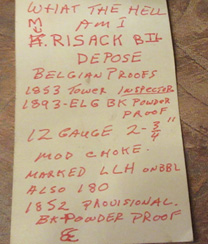 WHAT THE HELL
AM I
A. RISACK BII
DEPOSE
BELGIAN PROOFS
1853 TOWER INSPECTOR
1893-ELG BK POWDER
PROOF
12 GAUGE 2-3/4"
MOD CHOKE.
MARKED LLH ON BBL
ALSO 180
1852 PROVISIONAL.
BK-POWDER PROOF